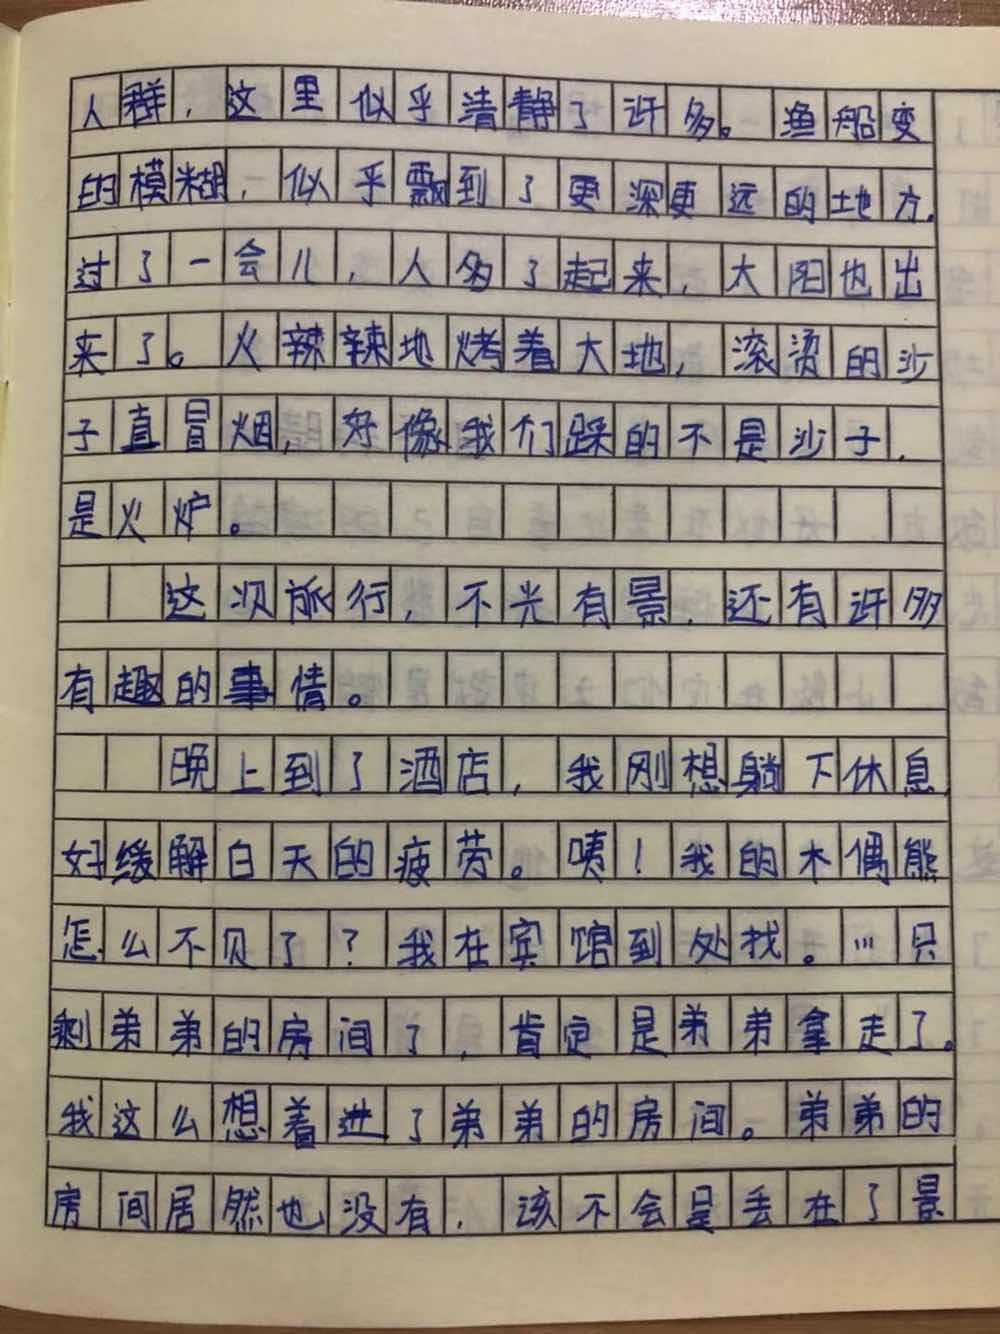 人群，这里似乎清静了许多。渔船变
的模糊，似乎飘到了更深更远的地方。
过了一会儿，人多了起来，太阳也出
来了。火辣辣地烤着大地，滚烫的沙
子直冒烟，好像我们踩的不是沙子，
是火炉。
这次旅行，不光有景，还有许多
有趣的事情。
晚上到了酒店，我刚想躺下休息，
好缓解白天的疲劳。咦！我的木偶熊
怎么不见了？我在宾馆到处找。…只
剩弟弟的房间了，肯定是弟弟拿走了。
我这么想着进了弟弟的房间。弟弟的
房间居然也没有，该不会是丢在了景